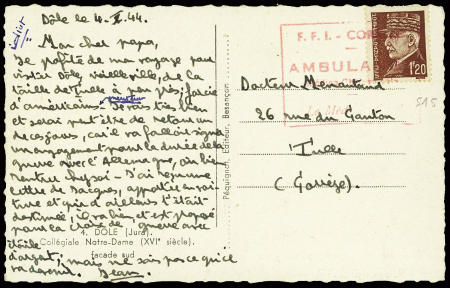 Dôle le 4.X.44.
Mon cher papa,
Je profite de mon voyage pour
visiter Dôle, vieille ville, de la
taille de Tulle à peu près, farcie
d'américains. Je vais très bien
et serai peut être de retour un
de ces jours, car il va falloir signer
un engagement pour la durée de la
guerre avec l'Allemagne, ou bien
rentrer chez soi - J'ai reçu une
lettre de Jacques, apportée en voi-
ture et qui d'ailleurs t'était
destinée, il va bien, et est proposé
pour la croix de guerre avec
étoile
d'argent, mais ne sais pas ce qu'il
va devenir. Jean.
4. DOLE (Jura).
Collégiale Notre-Dame (XVIe siècle).
façade sud
Péquignot, Editeur, Besançon
F.F.I. - CO
AMBULA
Le Mé
1f20
515
Docteur
26 rue du Canton
Tulle
(Corrèze).